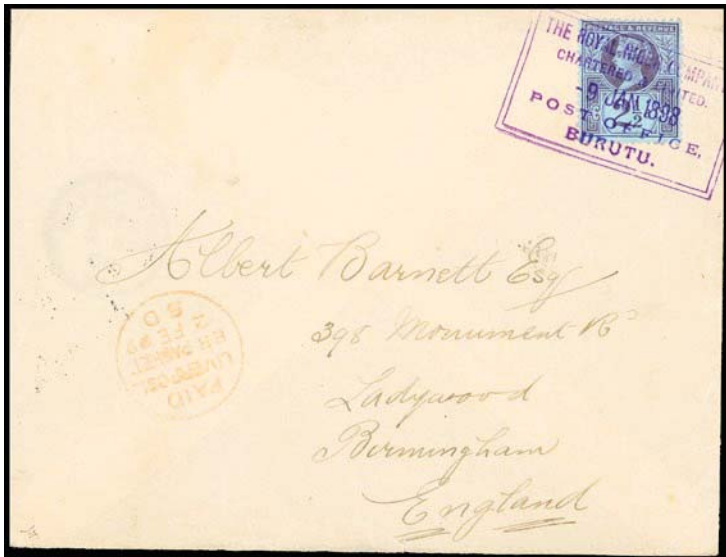 POSTAGE & REVENUE
THE ROYAL NIGER COMPANY
CHARTERED & LIMITED.
-9 JAN 1898
2½
POST OFFICE,
BURUTU.
Albert Barnett Esq
398 Monument Rd
Ladywood
Birmingham
England
PAID
LIVERPOOL
BR PACKET
2 FE 98